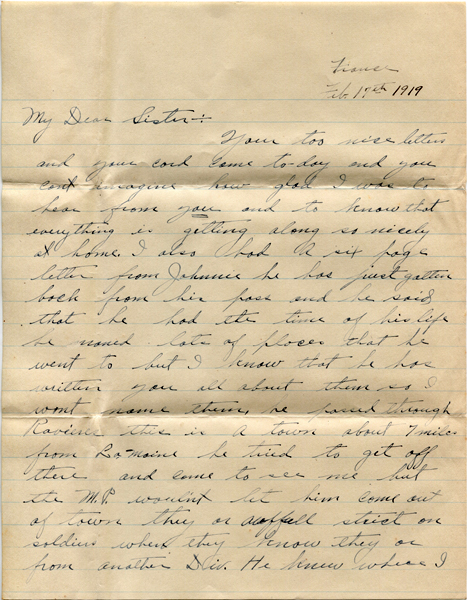 France
Feb. 17th 1919
My Dear Sister:
Your too nice letters
and your card came to-day and you
cant imagine how glad I was to
hear from you and to know that
everything is getting along so nicely
at home. I also had a six page
letter from Johnnie he has just gotten
back from his pass and he said
that he had the time of his life
he named lots of places that he
went to but I know that he has
written you all about them so I
wont name them, he passed through
this is a town about 7 miles
from he tried to get off
there and come to see me but
the M.P. wouldn't let him come out
of town they ar awfull strict on
soldiers when they know they ar
from another Div. He knew where I